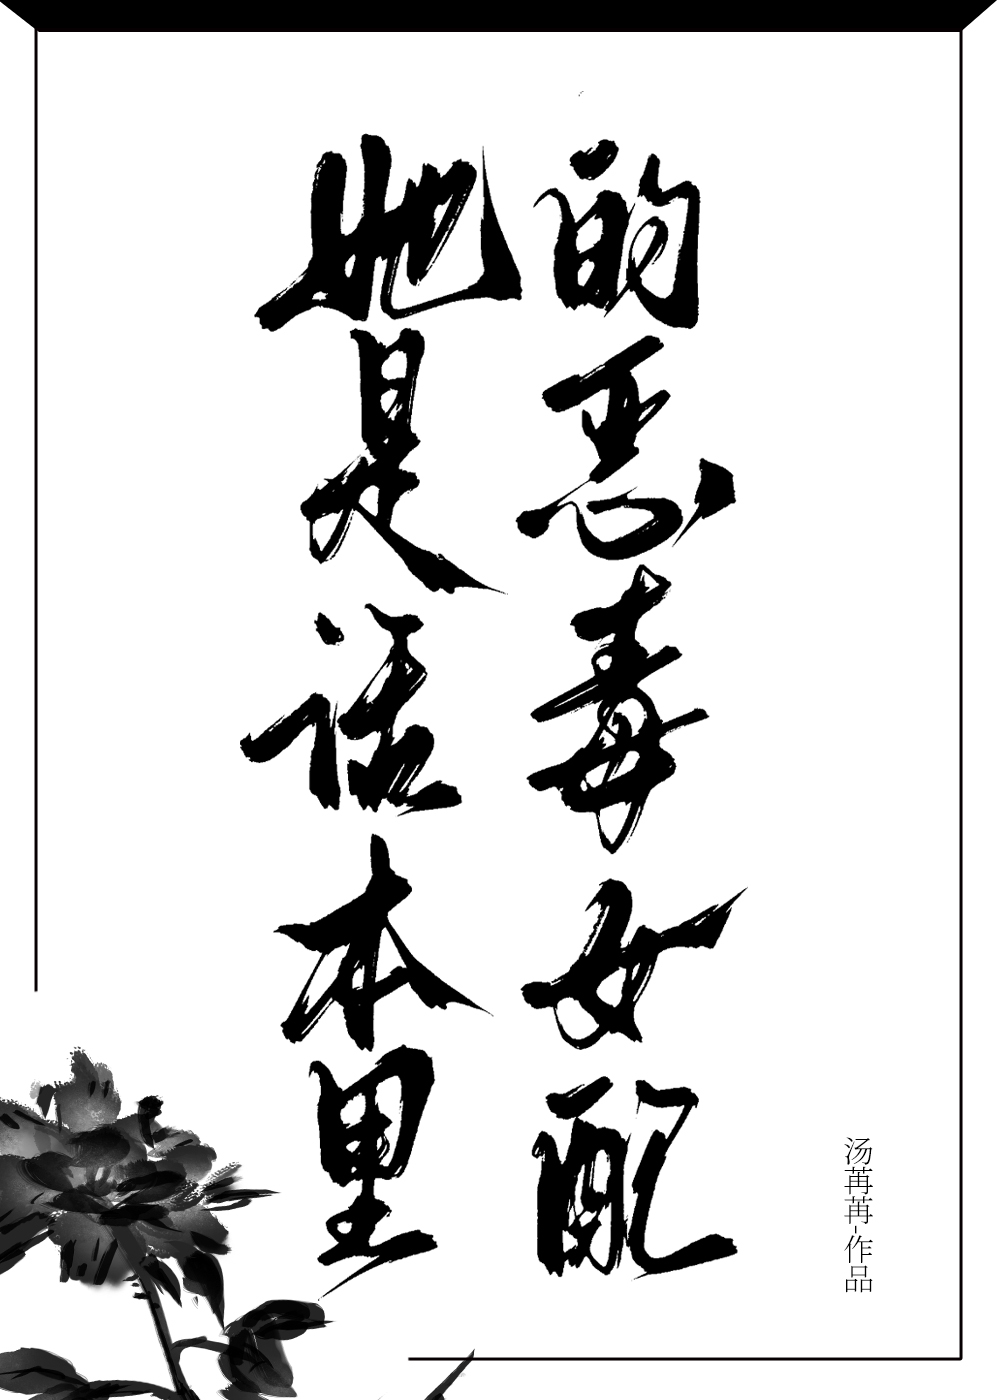 她是话本里
的恶毒女配
汤苒苒-作品